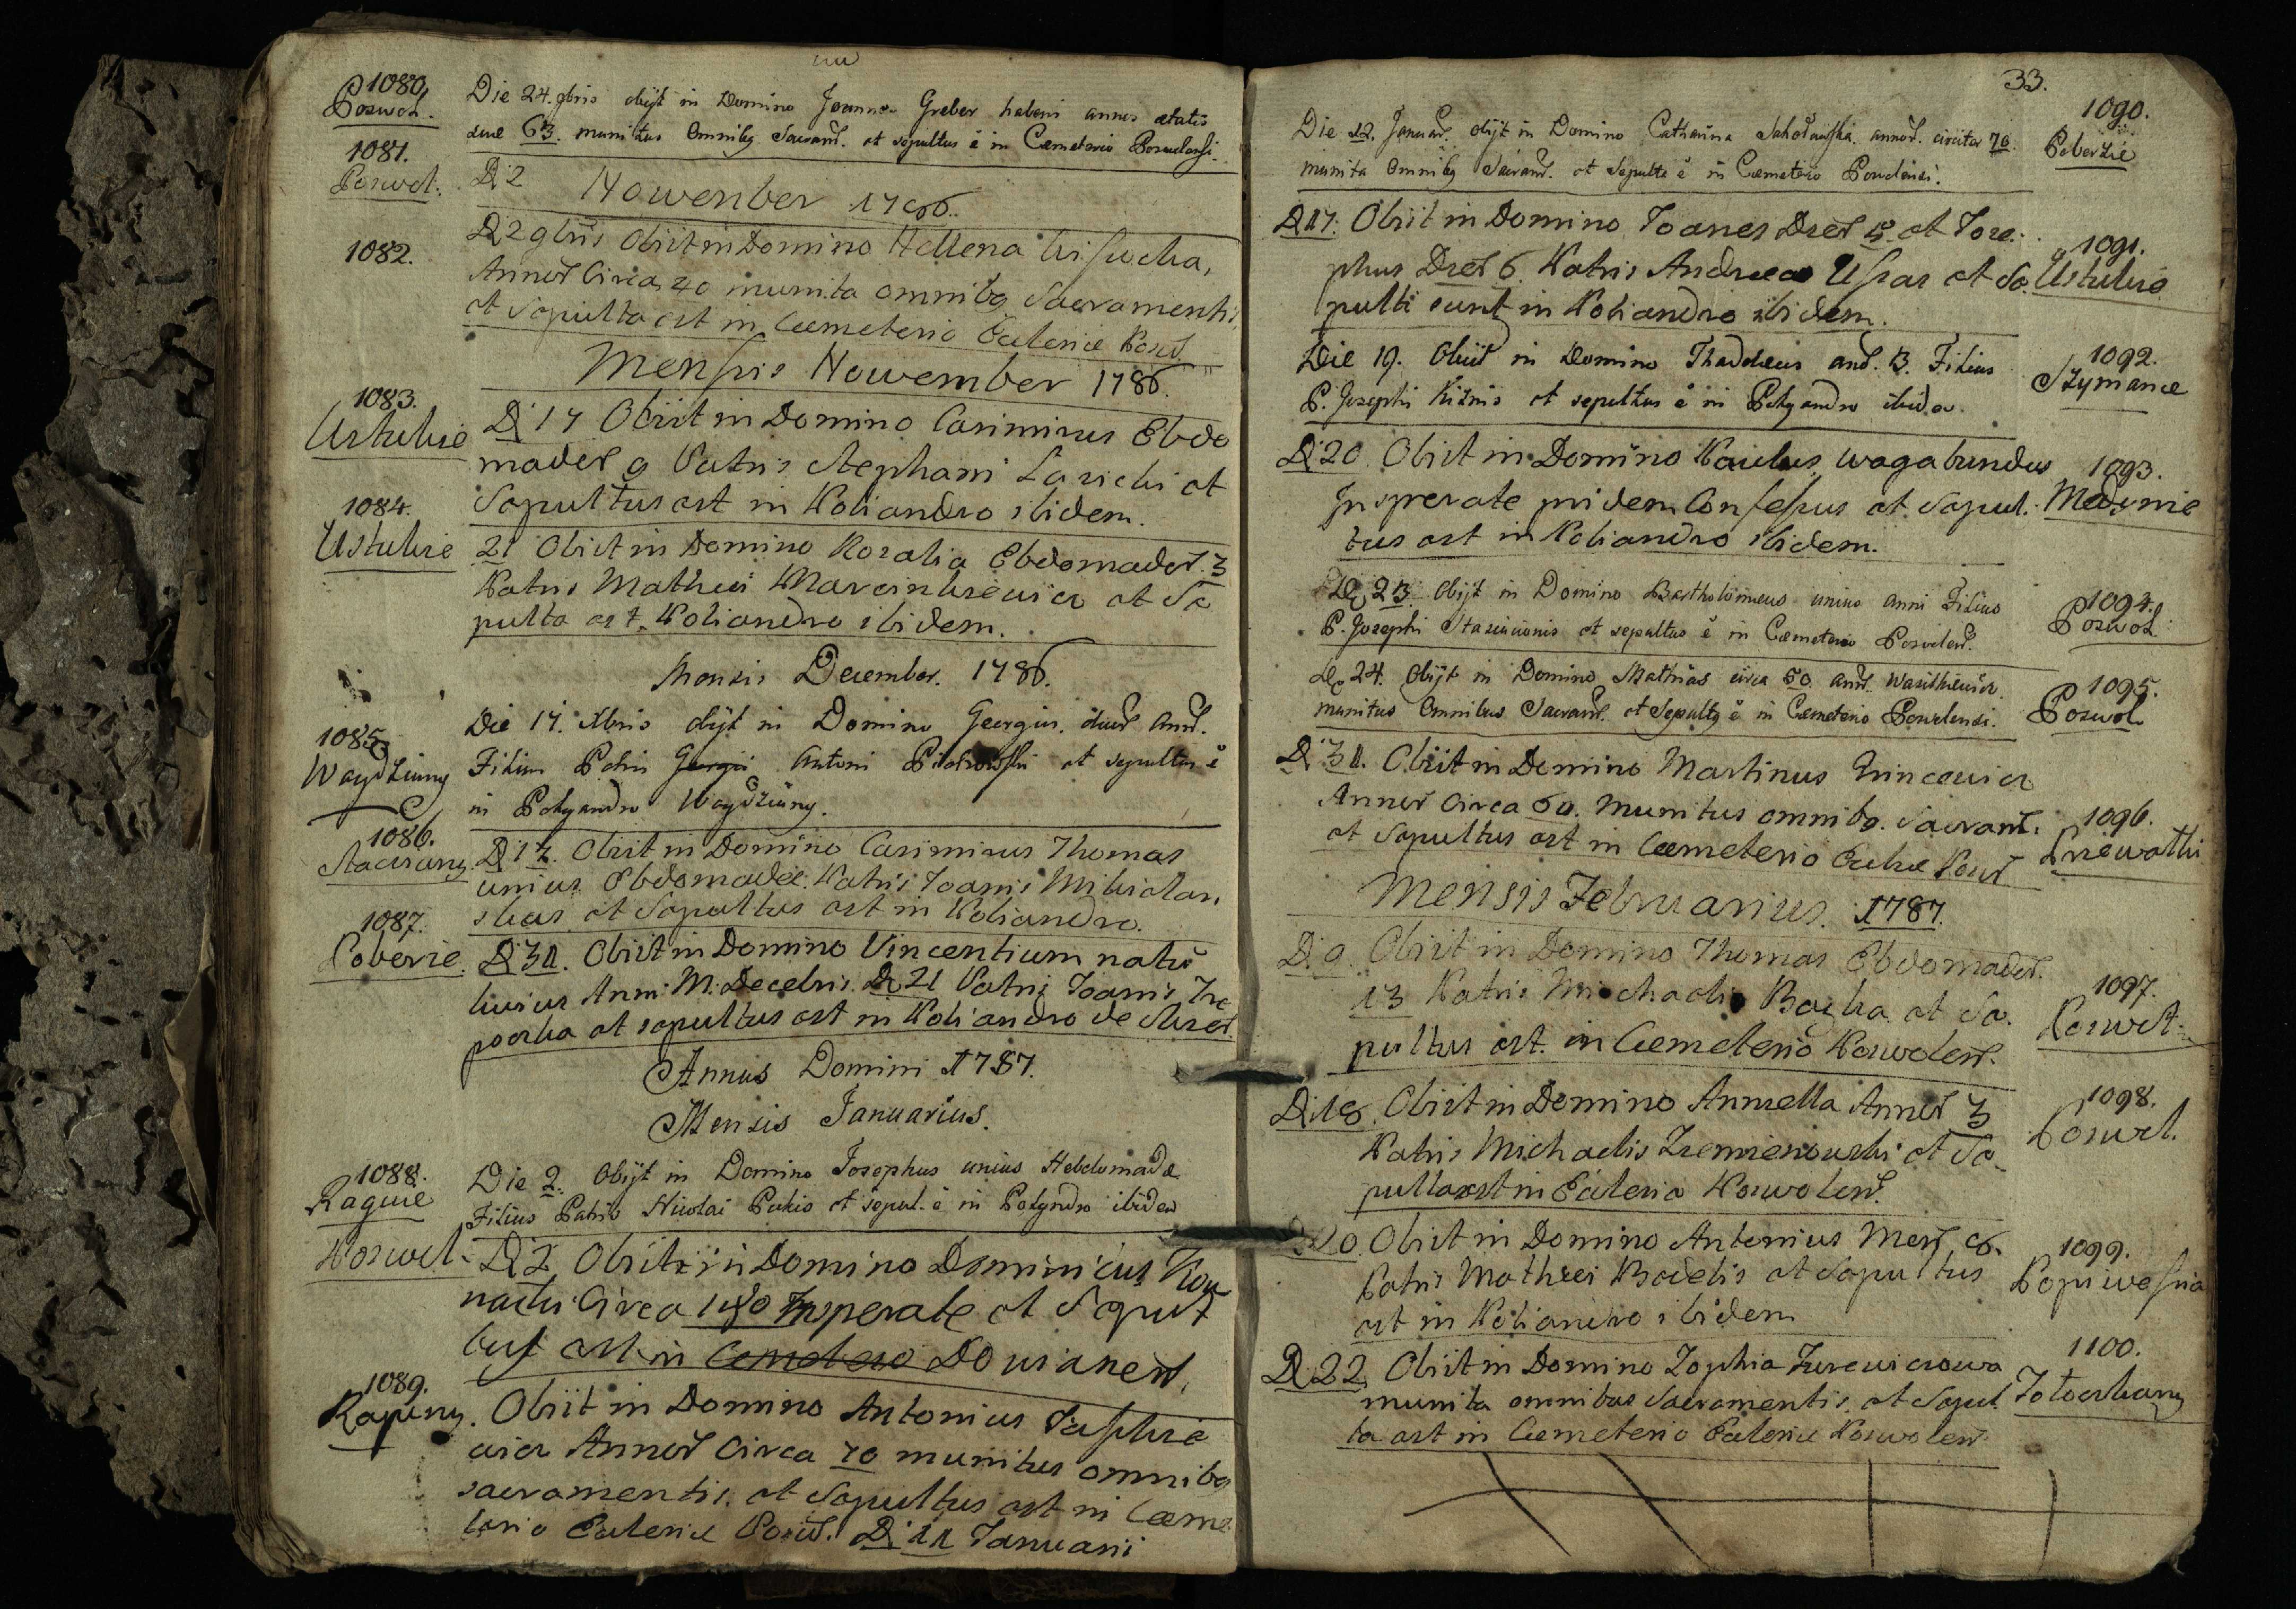 1080.
Poswol.
Die 24. 9bris obijt in Domino Joannes Greber habens annos ætatis
suæ 63. munitus Omnibg Sacram. et sepultus ē in Cæmeterio Posvolensi.
1081.
Poswol.
D 2
Nowenber 1786.
1082.
D 2 9bris Obiit in Domino Hellena
Annor Circa 40 munita omnibg Sacramentis
et Sepulta est in Cœmeterio Eclesiæ Posw.
Mensis Nowember 1786.
1083.
Ustukie
D 17 Obiit in Domino Casimirus Ebdo
madar 9 Patris Stephani Lasicki et
Sepultus est in Poliandro ibidem.
1084.
Ustukie
21 Obiit in Domino Rozalia Ebdomadar. 3
Patris Mathei Marcinkiewicz et Se
pulta est Poliandro ibidem.
Mensis December. 1786.
1085
Waydziuny
Die 17. Xbris obijt in Domino Georgius. duor Ann.
Filius Patris Georgii Antoni et sepultus ē
in Polyandro Waydziuny.
1086.
Staczuny
D 17. Obiit in Domino Casimirus Thomas
unius Ebdomadæ. Patris Joanis Mikolau,
skas et Sepultus est in Poliandro.
1087.
Poberie.
D 30. Obiit in Domino Vincentium natū
huius Anni M. Decebris D 21 Patris Joanis Tre
poczka et sepultus est in Poliandro de
Annus Domini 1787.
Mensis Januarius.
1088.
Raguie
Die 2. Obijt in Domino Josephus unius Hebdomadæ
Filius Patris Nicolai Pukis et sepul. ē in Polyndro ibidem
Poswol.
D 2 Obiit in Domino Dominicus
Circa 180 Insperate et Sepul
tus est in Cemeterio
1089.
Rapuny.
Obiit in Domino Antonius Saszkie
wicz Annor Circa 70 munitus omnibg
sacramentis. et Sepultus est in Cæme
terio Eclesiæ Posw. D 11 Januarii
33.
1090.
Poberzie
Die 12. Januar. obijt in Domino Catharina Sokołowska. annor. circiter 70.
munita Omnibg Sacram. et Sepulta ē in Cæmeterio Posvolensi.
1091.
Ustukie
D 17. Obiit in Domino Joanes Dier 15 et Jose.
phus Dier 6 Patris Andreæ Uszas et Se.
pulti sunt in Poliandro ibidem.
1092.
Szymance
Die 19. Obiit in Domino Thaddæus an. 3. Filius
P. Josephi Kiżnis et sepultus ē in Polyandro ibidem.
1093.
Medynie
D 20. Obiit in Domino Paulus wagabundus
Insperate pridem Confessus et Sepul.
tus est in Poliandro ibidem.
1094.
Poswol.
D 23. Obijt in Domino Bartholomæus unius anni Filius
P. Josephi Stasiucionis et sepultus ē in Cæmeterio Posvolen.
1095.
Poswol
D 24. Obijt in Domino Mathias circa 50. ann. Wasilkiewicz.
munitus Omnibus Sacram. et Sepultg ē in Cæmeterio Posvolensi.
1096.
D 30. Obiit in Domino Martinus Grincewicz
Annor Circa 60. Munitus omnibg. Sacram.
et Sepultus est in Cœmeterio Eclesiæ Posw
Mensis Februarius. 1787.
1097.
Poswol.
D 9. Obiit in Domino Thomas Ebdomadar.
13 Patris Michaelis Bayka et Se.
pultus est. in Cæmeterio Poswolen.
1098.
Poswol.
D 18. Obiit in Domino Anniella Annor 3
Patris Michaelis Ziemienowski et Se.
pulta est in Eclesia Poswolen.
1099.
Popiwesnia
20. Obiit in Domino Antonius Men. 6.
Patris Mathæi Bedelis et Sepultus
est in Poliandro ibidem
1100.
Totoczkany
D 22 Obiit in Domino Zophia Jurewiczowa
munita omnibus Sacramentis, et Sepul
ta est in Cæmeterio Eclesiæ Poswolen.